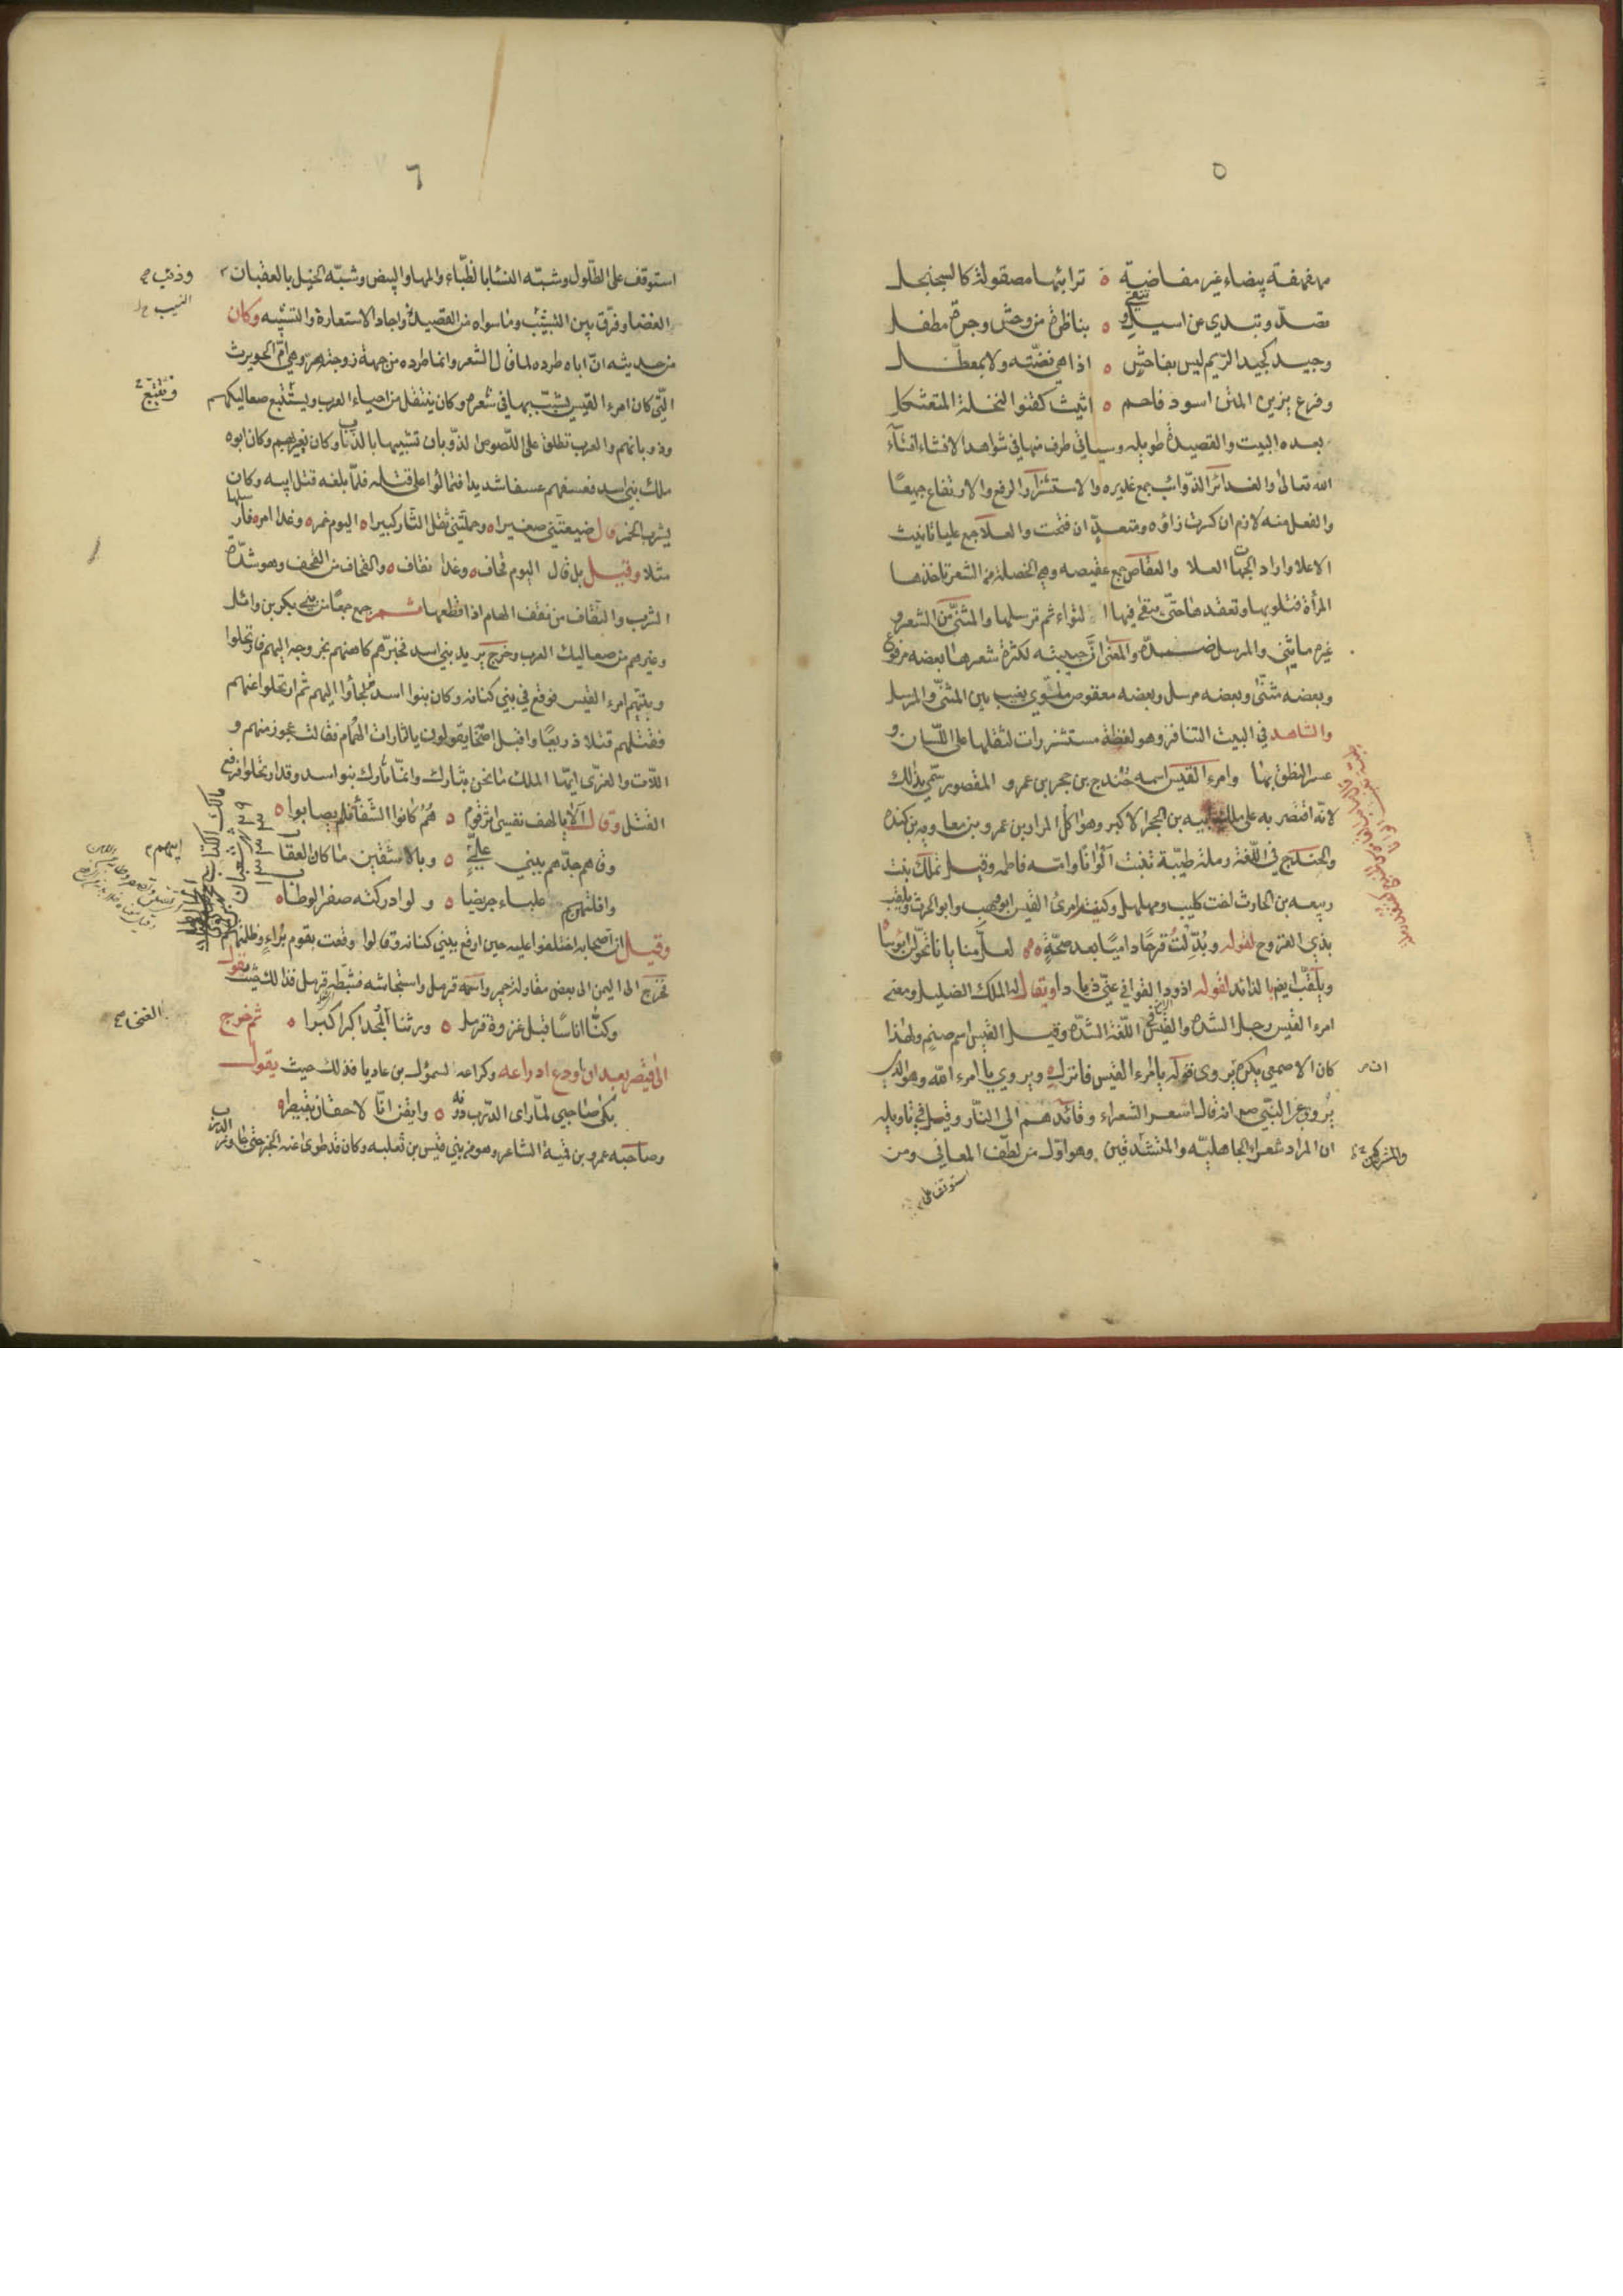 ٥
مهفهفة بيضاء غير مفاضية ٥ ترائبها مصقولة كالسجنجل
تصدّ وتبدي عن اسيل وتتقي ٥ بناظرة من وحش وجرة مطفل
وجيد كجيد الرّيم ليس بفاحش ٥ اذا هي نضّته ولا بمعطّل
وفرع يزين المتن اسود فاحم ٥ اثيث كقنو النخلة المتعثكل
بعده البيت والقصيدة طويله وسياتي طرف منها في شواهد الانشاء انشآء
الله تعالى والغدائر الذّوائب جمع غديره والاستشزار الرفع والارتفاع جميعًا
والفعل منه لازم ان كسرت زاؤه ومتعدّ ان فتحت والعلا جمع عليا تانيث
الاعلا واراد الجهات العلا والعقاص جمع عقيصه وهي الخصلة من الشعر تاخذها
المرأة فتلويها وتعقدها حتّى يبقى فيها التواء ثم ترسلها والمثنّى من الشعر و
غيره ما يثنى والمرسل ضدّه والمعنى انّ حبيبته لكثرة شعرها بعضه مرفوع
وبعضه مثنّى وبعضه مرسل وبعضه معقوص ملتوي يغيب بين المثنّى والمرسل
والشاهد في البيت التنافر وهو لفظة مستشزرات لثقلها على اللّسان و
عسر النطق بها وامرء القيس اسمه حُندج بن حجر بن عمرو المقصور سمّي بذلك
لانّه اقتصر به على ملك ابيه بن الحجر الاكبر وهو اكل المرار بن عمرو بن معاويه بن كنده
والحندج في اللّغة رملة طيّبة تنبت ألوانًا وامّه فاطمه وقيل تملك بنت
ربيعه بن الحارث اخت كليب ومهلهل وكنية امرئ القيس ابو وهب وابو الحرث ويلقب
بذي القروح لقوله وبُدّلتُ قرحًا داميًا بعد صحّةٍ ٥ لعلّ منايانا تحوّلن ابؤسا
ويلقّب ايضا بالذائد لقوله اذود القوافي عنّي ذيادا ويقال له الملك الضليل ومعنى
امرء القيس رجل الشدة والقيس في اللّغة الشدّة وقيل القيس اسم صنم ولهذا
كان الاصمعي يكره ان يروى قوله يا امرء القيس فانزل ٥ ويروي يا امرء الله وهو الذي
يُروى عن النبّي صلعم انه قال اشعر الشعراء وقائدهم الى النّار وقيل في تاويله
ان المراد شعراء الجاهليّه والمشركين والمتشدقين وهو اوّل من لطّف المعاني ومن
استوقف على
٦
استوقف على الطّلول وشبّه النسّا بالظّباء والمها والبيض وشبّه الخيل بالعقبان
والعصا وفرق بين النسيب وما سواه من القصيدة واجاد الاستعارة والتشبيه وكان
من حديثه انّ اباه طرده لما قال الشعر وانما طرده من جهة زوجته هرّ وهي امّ الحويرث
التّي كان امرء القيس يشبّب بها في شعره وكان يتنقل من احياء العرب ويستتبع صعاليكهم
وذوبانهم والعرب تطلق على اللّصوص الذّوبان تشبيها بالذّياب وكان يغير بهم وكان ابوه
ملك بني اسد فعسفهم عسفا شديدا فتمالئوا على قتله فلمّا بلغه قتل ابيه وكان
يشرب الخمر قال ضيعتني صغيرا ٥ وحملتني ثقل الثّار كبيرا ٥ اليوم خمر ٥ وغدا امر ٥ فارسلها
مثلا وقيل بل قال اليوم قحاف ٥ وغدا نقاف ٥ والقحاف من القحف وهو شدّة
الشرب والنقاف من نقف الهام اذا قطعها ثم جمع جمعًا من بني بكر بن وائل
وغيرهم من صعاليك العرب وخرج يريد بني اسد فخبرّهم كاهنهم بخروجه اليهم فارتحلوا
وتبعهم امرء القيس فوقع في بني كنانه وكان بنوا اسد قد لجأوا اليهم ثم ارتحلوا عنهم
فقتلهم قتلا ذريعًا واقبل اصحابه يقولون يالثارات الهُمام فقالت عجوز منهم و
اللّات والعزّى ايّها الملك ما نحن بثارك وانمّا ثارك بنوا اسد وقد ارتحلوا فرفع
القتل وقال ألا يا لهف نفسي اثر قوم ٥ هُمُ كانوا الشّفاء فلم يصابوا ٥
وقاهم جدّهم ببني علىٍّ ٥ وبالاشقين ما كان العقاب
وافلتهنّ علباء جريضا ٥ ولو ادركنه صفر الوطاب ٥
وقيل ان اصحابه اختلفوا عليه حين اوقع ببني كنانه وقالوا وقعت بقوم بُراءٍ وظلمتهم
فخرج الى اليمن الى بعض مقاولة حمير واسمه قرمل واستجاشه فثبّطه قرمل فذالك حيث يقول
وكنّا اناسًا قبل غزوة قرمل ٥ ورثنا الغنى والمجد اكبر اكبرا ٥ ثم خرج
الى قيصر بعد ان اودع ادراعه وكراعه السمؤل بن عاديا فذلك حيث يقول
بكى صاحبي لمّا راى الدّرب دونه ٥ وايقن انّا لاحقان بقيصرا ٥
وصاحبه عمرو بن قميئة الشاعر وهو من بني قيس بن ثعلبه وكان قد طوى عنه الخبر حتى جاوز الدّرب